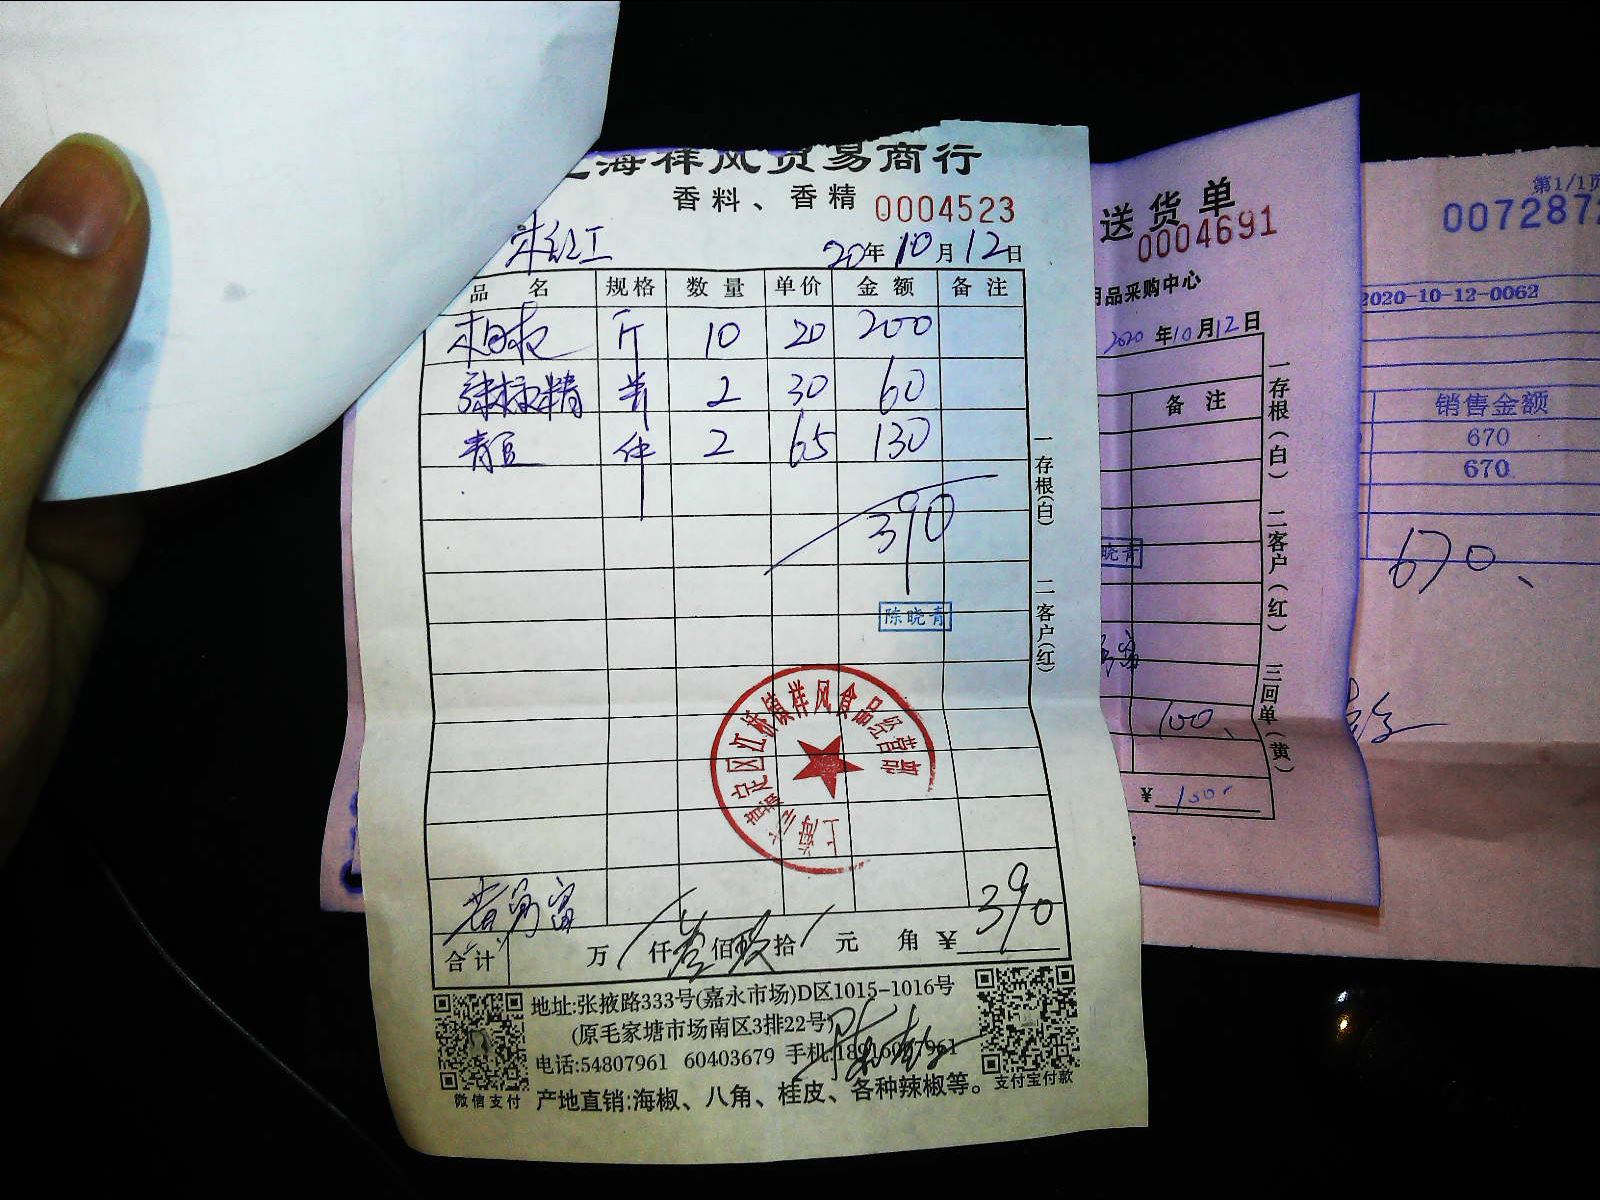 上海祥风贸易商行
香料、香精 0004523
20年10月12日
品名 规格 数量 单价 金额 备注
斤 10 20 200
辣椒精 2 30 60
青豆 件 2 65 130
390
陈晓青
上海市嘉定区江桥镇祥风食品经营部
合计 万 仟 叁佰 玖拾 元 角 ¥ 390
地址:张掖路333号(嘉永市场)D区1015-1016号
(原毛家塘市场南区3排22号)
电话:54807961 60403679 手机:
微信支付
支付宝付款
产地直销:海椒、八角、桂皮、各种辣椒等。
一存根(白) 二客户(红)
送货单
0004691
用品采购中心
2020年10月12日
备注
晓青
100
¥ 100
一存根(白) 二客户(红) 三回单(黄)
第1/1页
0072872
2020-10-12-0062
销售金额
670
670
670